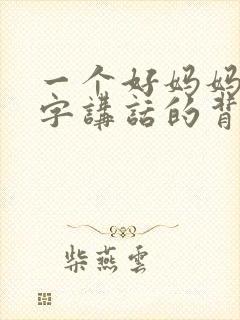 一个好妈妈
字講話的背
柴燕雲